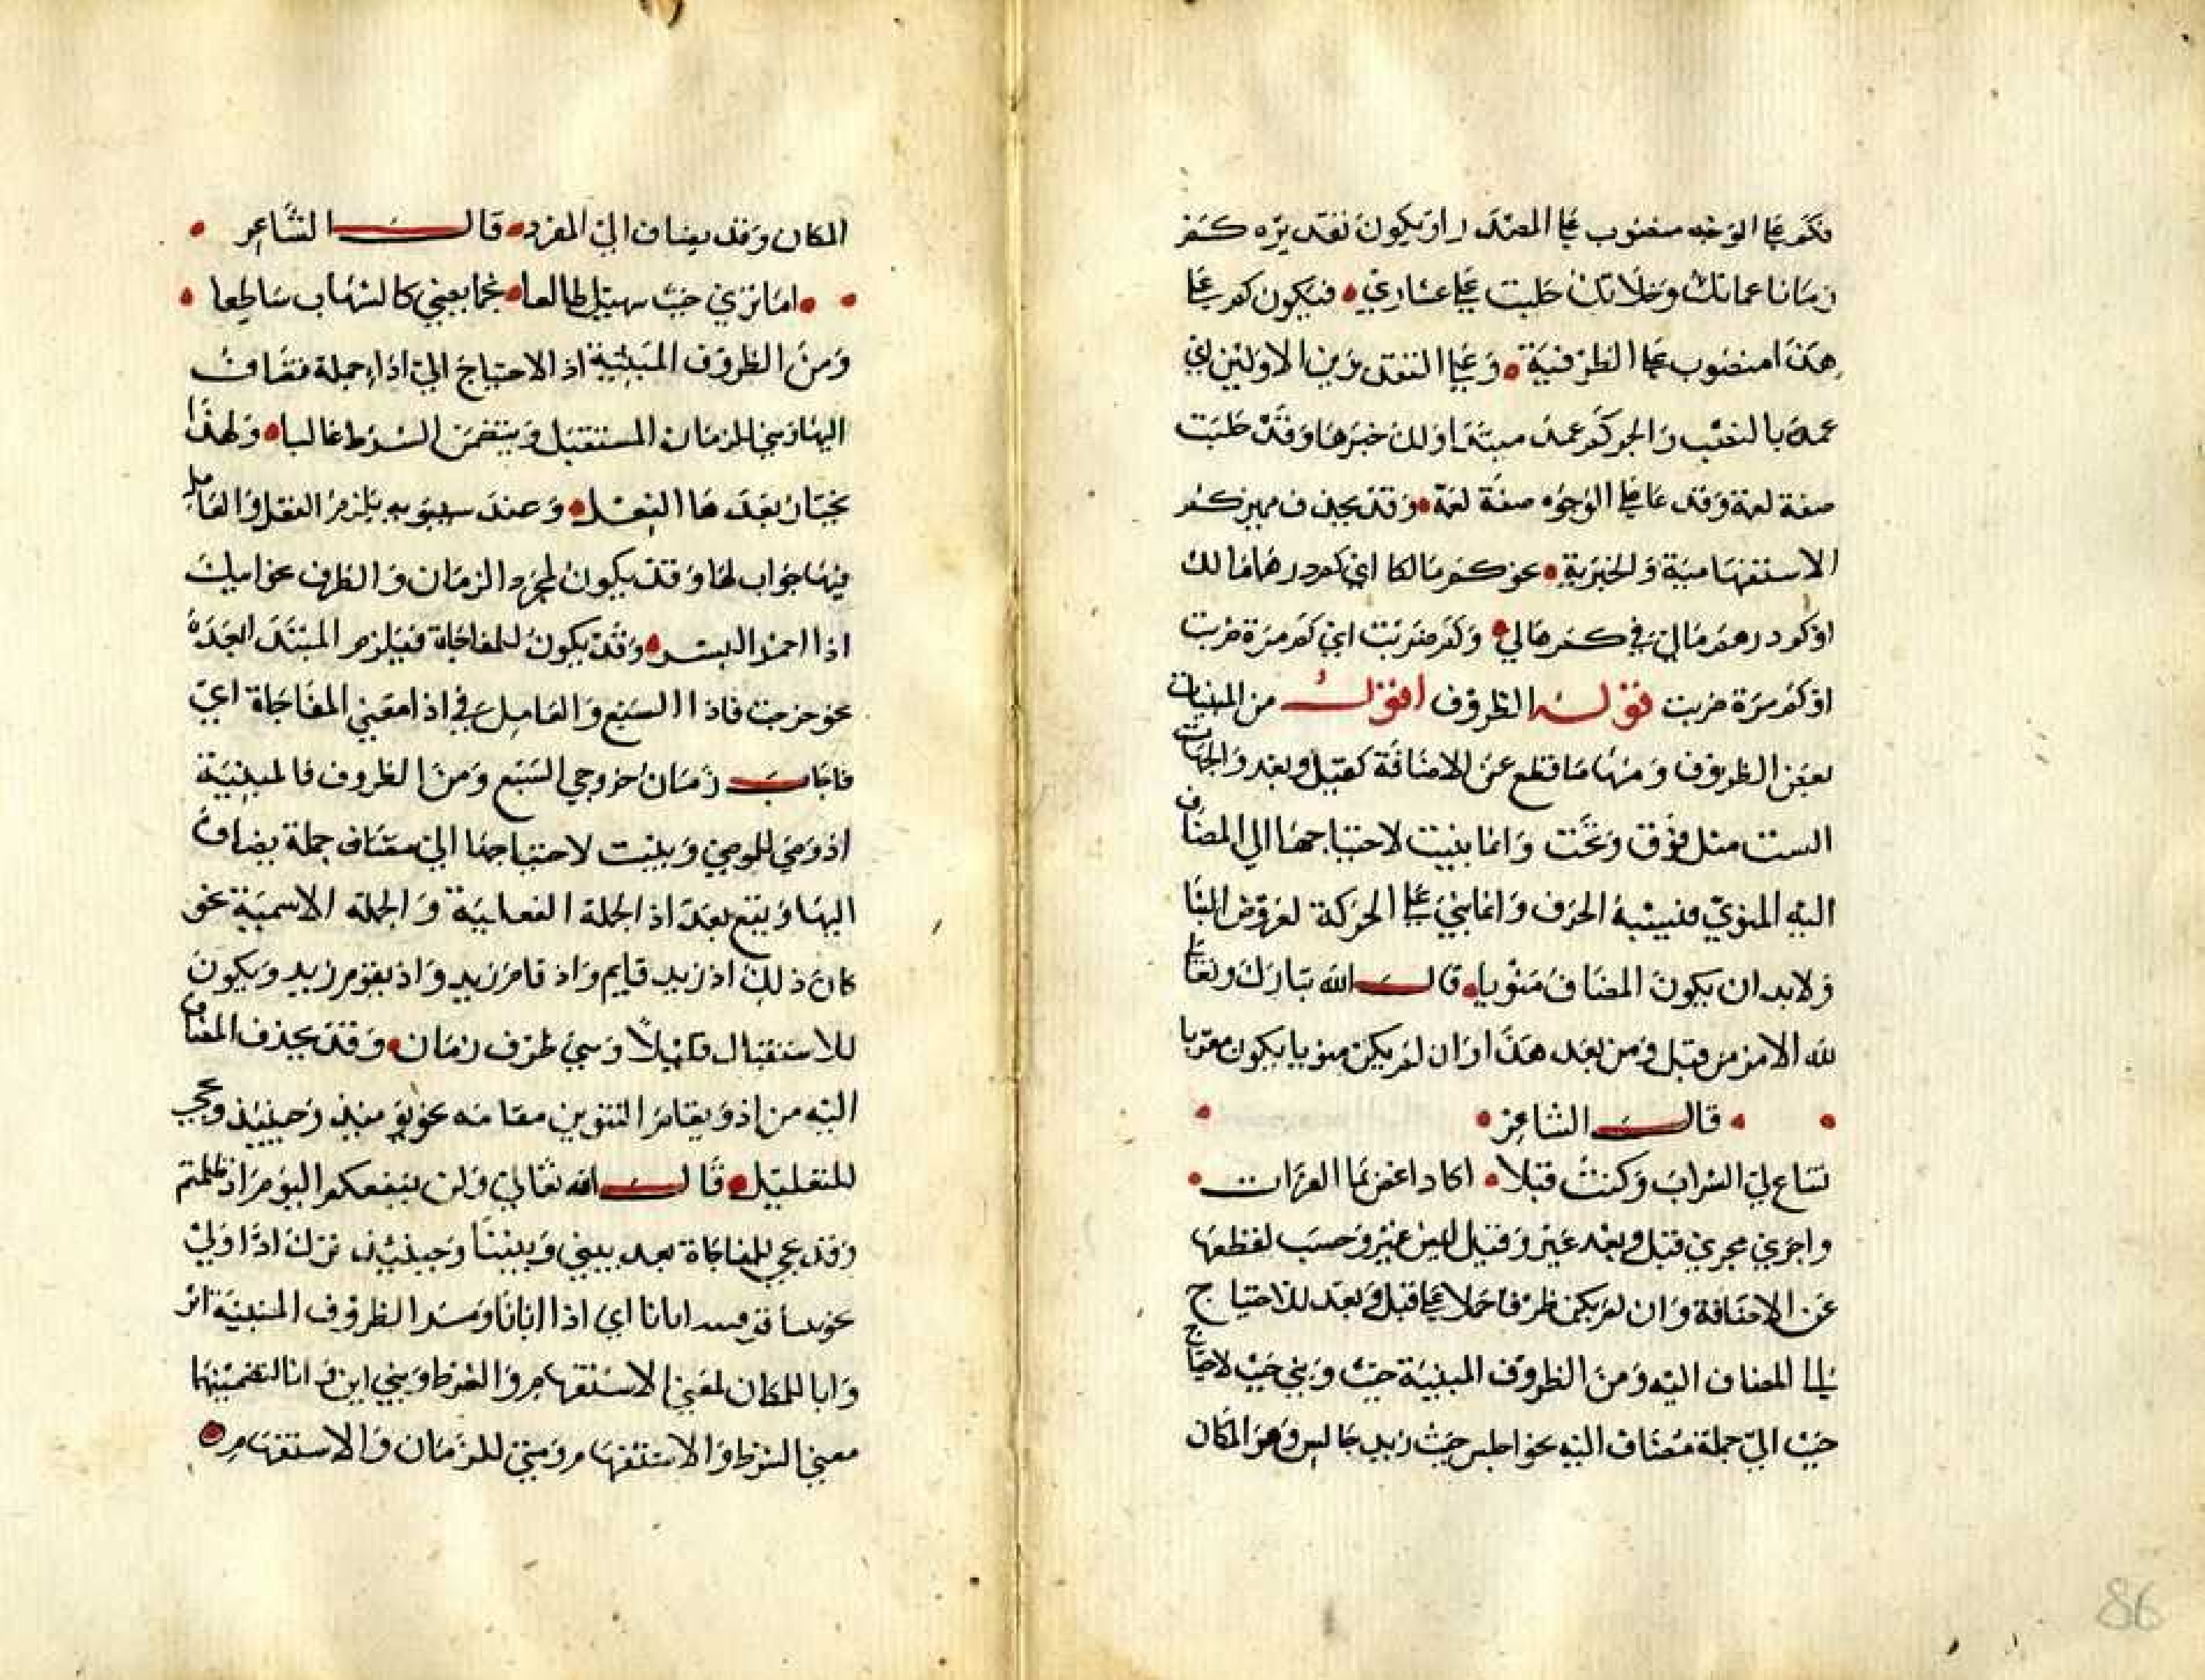 فكم على الوجه منصوب على المصدر او يكون تقديره كم
زمانا عماتك وخلاتك حلبت على عشاري فيكون كم على
هذا منصوب على الظرفية وعلى التقديرين الاولين في
عمة بالنصب والجر كم عمة مبتدا ولك خبرها وقد حلبت
صفة لعمة وقد عا على الوجوه صفة لعمة وقد يحذف مميز كم
الاستفهامية والخبرية نحو كم مالكا اي كم درهما مالك
او كم درهم مالي في كم مالي وكم ضربت اي كم مرة ضربت
او كم مرة ضربت قوله الظروف اقول من المبنيات
بعض الظروف ومنها ما قطع عن الاضافة كقبل وبعد والجهات
الست مثل فوق وتحت وانما بنيت لاحتياجها الى المضاف
اليه المنوي فيشبه الحرف وانما بني على الحركة لعروض البنا
ولابد ان يكون المضاف منويا قال الله تبارك وتعالى
لله الامر من قبل ومن بعد هذا وان لم يكن منويا يكون معربا
قال الشاعر
نساغ لي الشراب وكنت قبلا اكاد اغص بما الفرات
واجري مجرى قبل وبعد غير وقيل ليس غير وحسب لقطعها
عن الاضافة وان لم يكن ظرفا حملا على قبل وبعد للاحتياج
الى المضاف اليه ومن الظروف المبنية حيث وبني حيث لاحتياج
حيث الى جملة مضاف اليه نحو اجلس حيث زيد جالس وهو المكان
المكان وقد يضاف الى المفرد قال الشاعر
اما ترى حيث سهيل طالعا نجما يعني كالشهاب ساطعا
ومن الظروف المبنية اذ الاحتياج الى اذا جملة تضاف
اليها وهي للزمان المستقبل ويتضمن الشرط غالبا ولهذا
يختار بعدها الفعل وعند سيبويه يلزم الفعل والعامل
فيها جواب لها وقد يكون لمجرد الزمان والظرف نحو اتيك
اذا احمر البسر وقد يكون للمفاجاة فيلزم المبتدا بعده
نحو خرجت فاذا السبع والعامل في اذا معنى المفاجاة اي
فاجات زمان خروجي السبع ومن الظروف فالمبنية
اذ وهي للموضي وبنيت لاحتياجها الى مضاف جملة يضاف
اليها ويقع بعد اذ الجملة الفعلية والجملة الاسمية نحو
كان ذلك اذ زيد قايم واذ قام زيد واذ يقوم زيد ويكون
للاستقبال قليلا وهي ظرف زمان وقد يحذف المضاف
اليه من اذ ويقام التنوين مقامه نحو يوميذ وحينيذ ويجي
للتعليل قال الله تعالى ولن ينفعكم اليوم اذ ظلمتم
وقد يجي للمفاجاة بعد بيني وبيننا وحينيذ ترك اذا اولى
نحو بينا اتانا اي اذا اتانا ومن الظروف المبنية اين
وانا للمكان لمعنى الاستفهام والشرط وبني اين وانا لتضمنهما
معنى الشرط والاستفهام ومتى للزمان والاستفهام
86